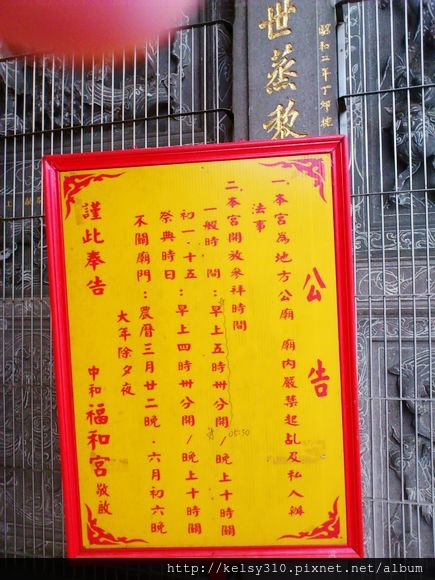 世蒸黎
昭和二年丁卯
公告
一.本宮為地方公廟 廟內嚴禁起乩及私人辦
法事
二.本宮開放參拜時間
一般時間:早上五時卅分開/晚上十時關
05:30
初一.十五:早上四時卅分開/晚上十時關
祭典時日
不關廟門:農曆三月廿二晚.六月初六晚
大年除夕夜
謹此奉告
中和福和宮敬啟
http://kelsy310.pixnet.net/album